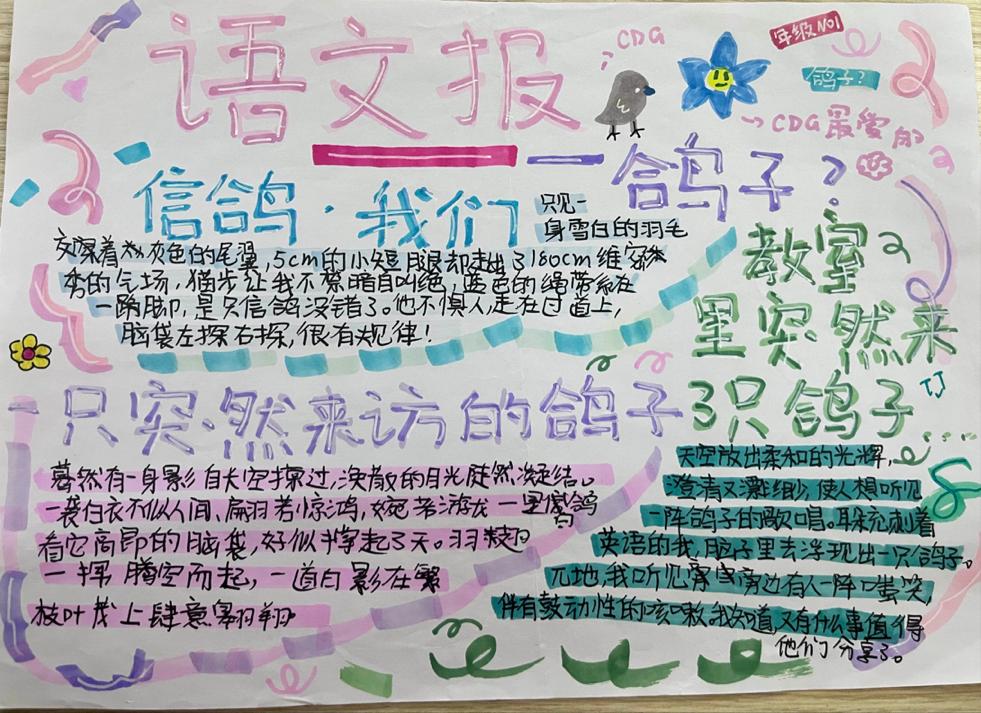 语文报
CDG
年级NO1
鸽子?
CDG最爱的
信鸽·我们
一鸽子?
只见一
身雪白的羽毛
着灰色的尾翼,5cm的小短腿却走出了180cm维密
秀的气场,猫步让我不禁暗自叫绝,蓝色的绳带系在
一只脚,是只信鸽没错了。他不惧人,走在过道上,
脑袋左探右探,很有规律!
教室
里突然来
了只鸽子
TJ
只突然来访的鸽子
蓦然有一身影自长空掠过,涣散的月光陡然凝结。
一袭白衣不似人间、扁羽若惊鸿,婉若游龙一里鸽
看它高昂的脑袋,好似撑起了天。羽翅
一挥腾空而起,一道白影在繁
枝叶茂上肆意翱翔
天空放出柔和的光辉,
澄清又缥缈,使人想听见
一阵鸽子的歌唱。耳朵充刺着
英语的我,脑子里去浮现出一只鸽子。
兀地,我听见旁边有人一阵嗤笑,
伴有鼓动性的咳嗽,我知道,又有什么事值得
他们分享了。